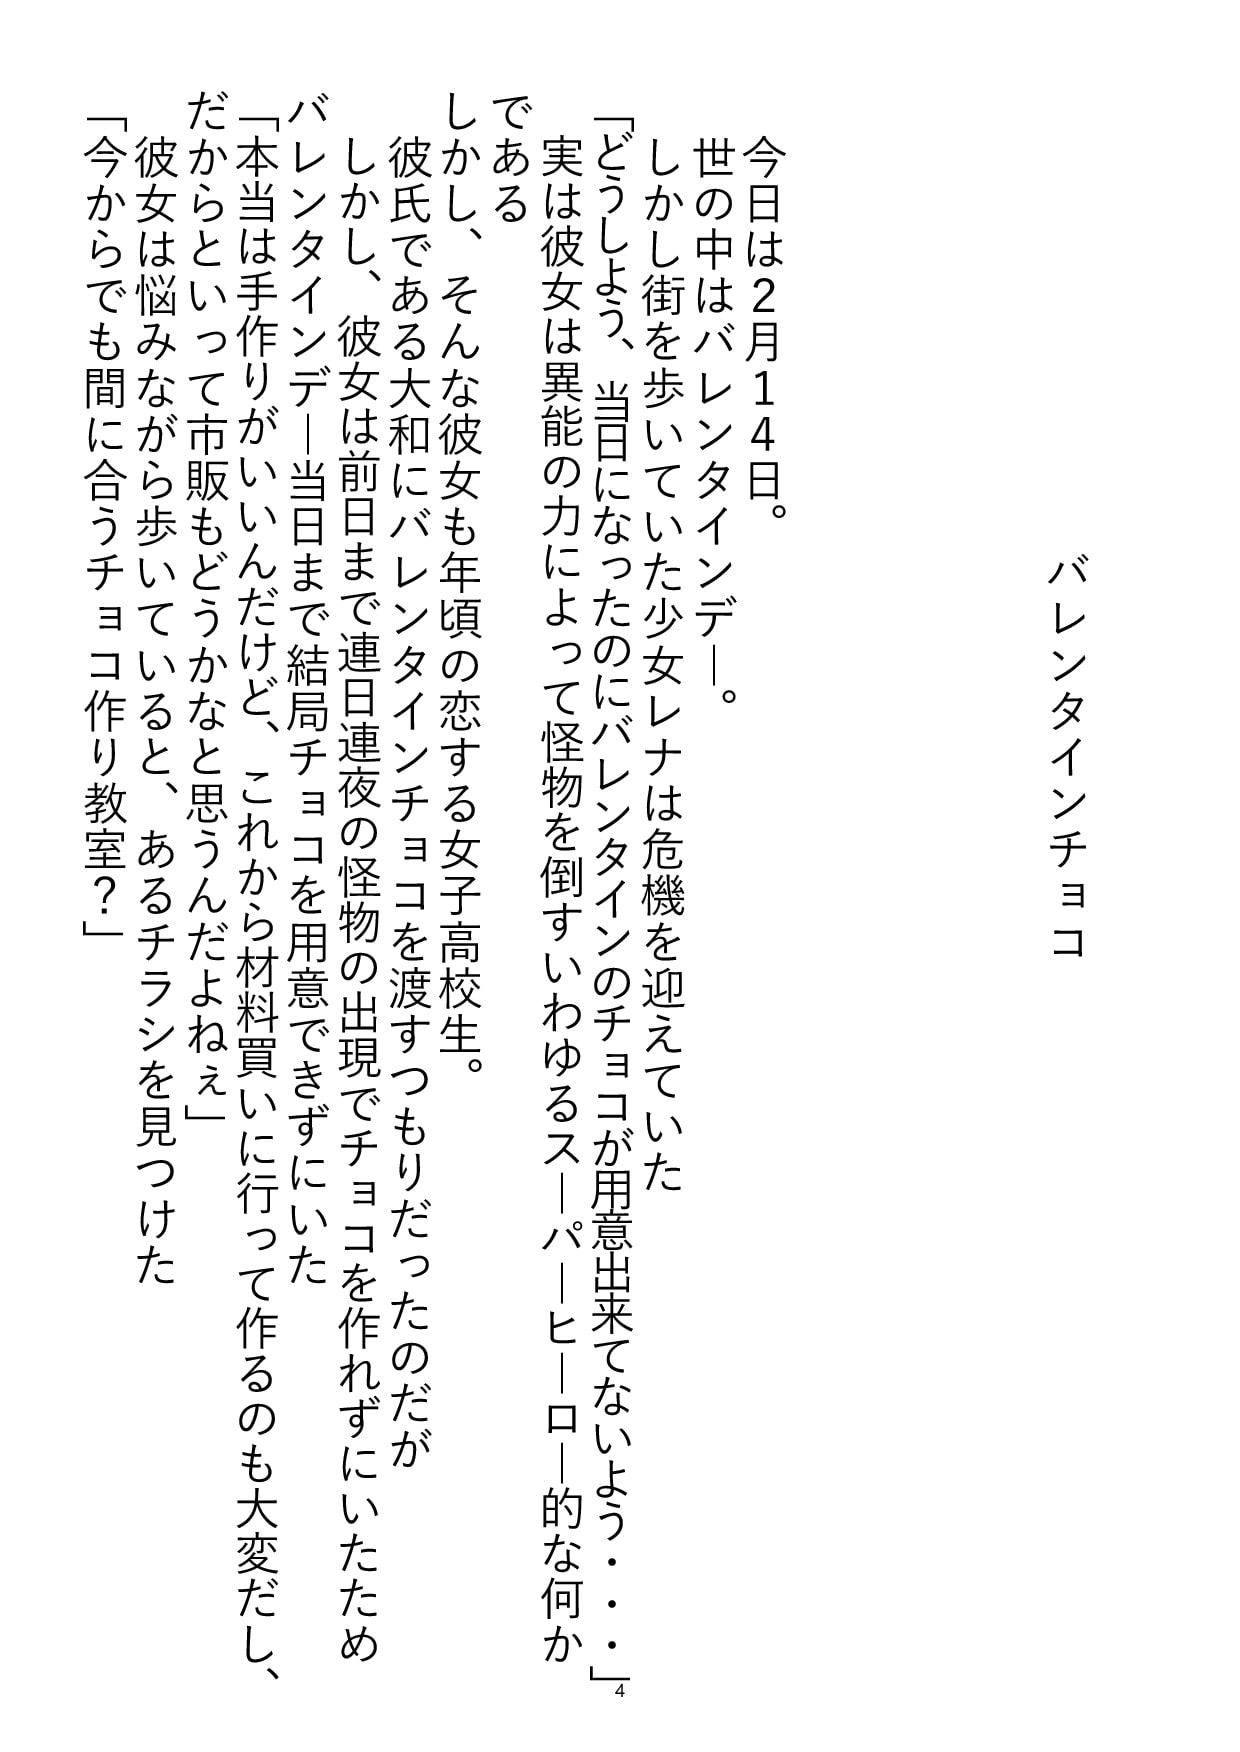 バレンタインチョコ
今日は２月１４日。
世の中はバレンタインデー。
しかし街を歩いていた少女レナは危機を迎えていた
「どうしよう、当日になったのにバレンタインのチョコが用意出来てないよう・・・」
実は彼女は異能の力によって怪物を倒すいわゆるスーパーヒーロー的な何か
である
しかし、そんな彼女も年頃の恋する女子高校生。
彼氏である大和にバレンタインチョコを渡すつもりだったのだが
しかし、彼女は前日まで連日連夜の怪物の出現でチョコを作れずにいたため
バレンタインデー当日まで結局チョコを用意できずにいた
「本当は手作りがいいんだけど、これから材料買いに行って作るのも大変だし、
だからといって市販もどうかなと思うんだよねぇ」
彼女は悩みながら歩いていると、あるチラシを見つけた
「今からでも間に合うチョコ作り教室？」
4